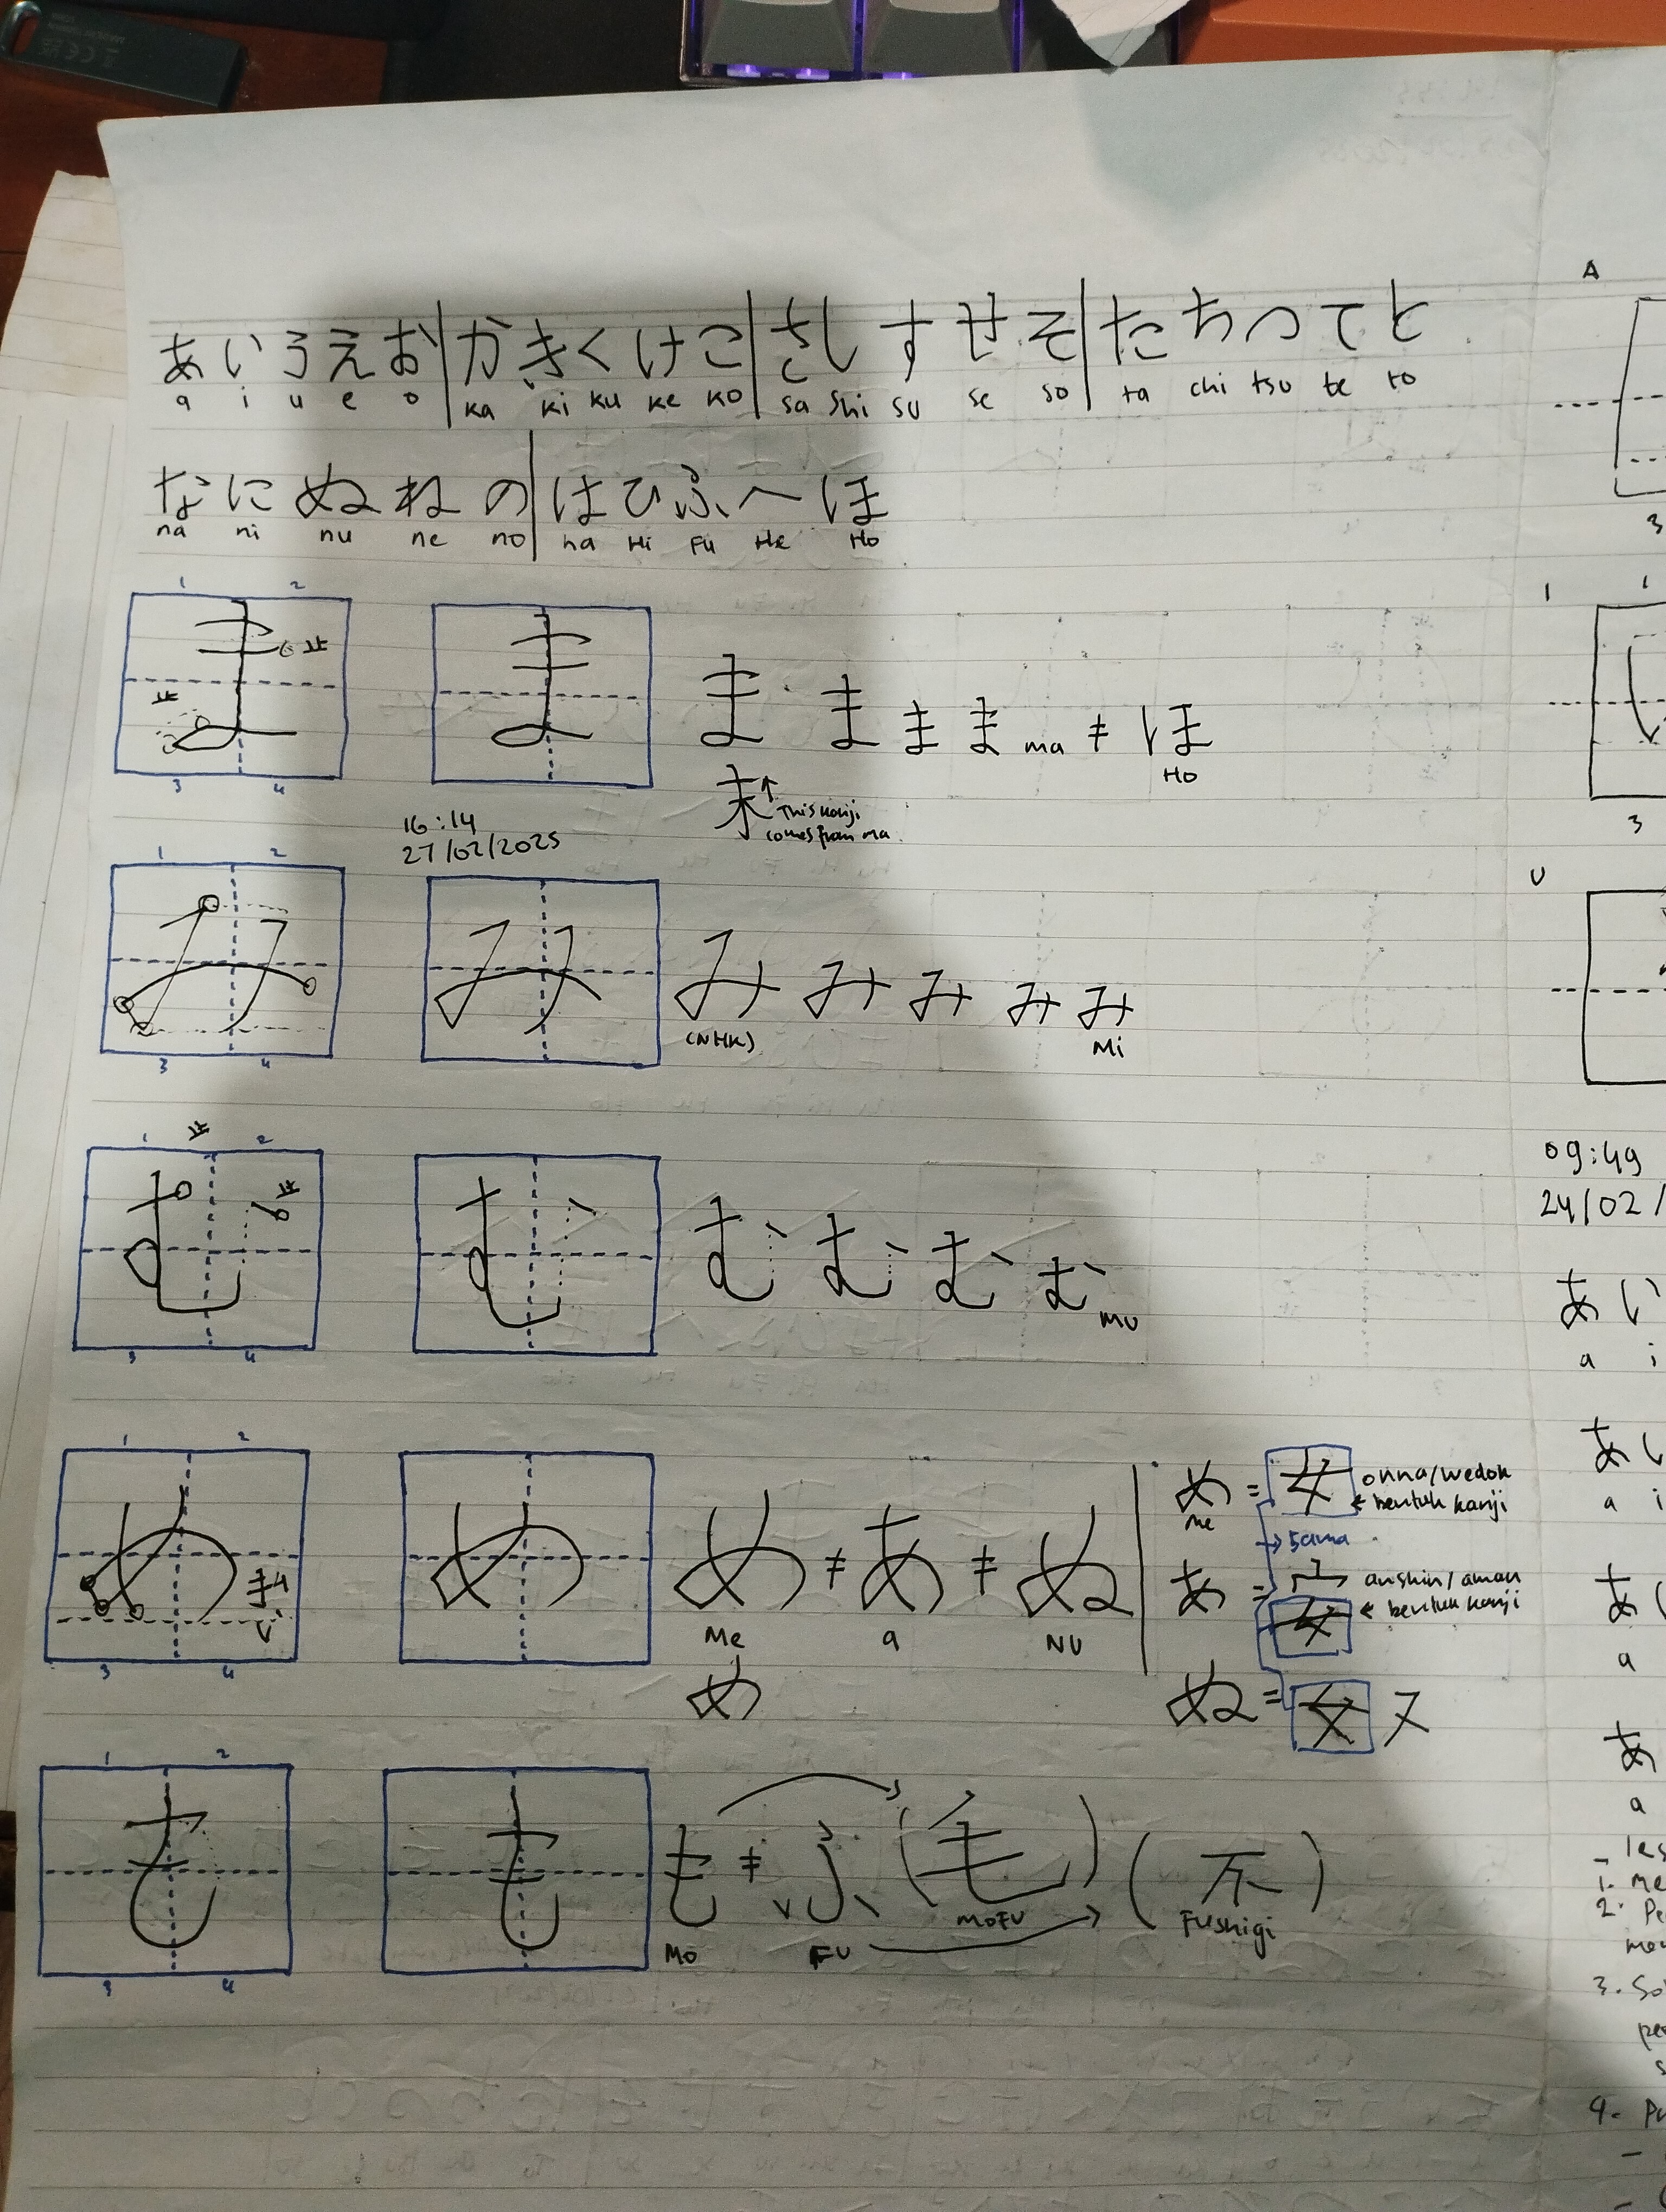 あいうえお|かきくけこ|さしすせそ|たちつてと
a i u e o ka ki ku ke ko sa shi su se so ta chi tsu te to
なにぬねの|はひふへほ
na ni nu ne no ha Hi Fu He Ho
1 2
3 4
ま ま ま ま ma ≠ ほ
Ho
末 ↑ This kanji
comes from ma
16:14
27/02/2025
1 2
3 4
み み み み み
(NHK) Mi
1 2
3 4
む む む む mu
1 2
3 4
め ≠ あ ≠ ぬ
Me a NU
め
め = 女 onna/wedok
Me ← bentuk kanji
→ sama
あ = 安 anshin/aman
← bentuk kanji
ぬ = 奴
1 2
3 4
も ≠ ふ (毛) (不)
Mo FU MOFU Fushigi
A
3
I 1
3
U
09:49
24/02/
あ い
a i
あ い
a i
あ
a
あ
a
1. Me
2. Pe
3. So
4. Pu